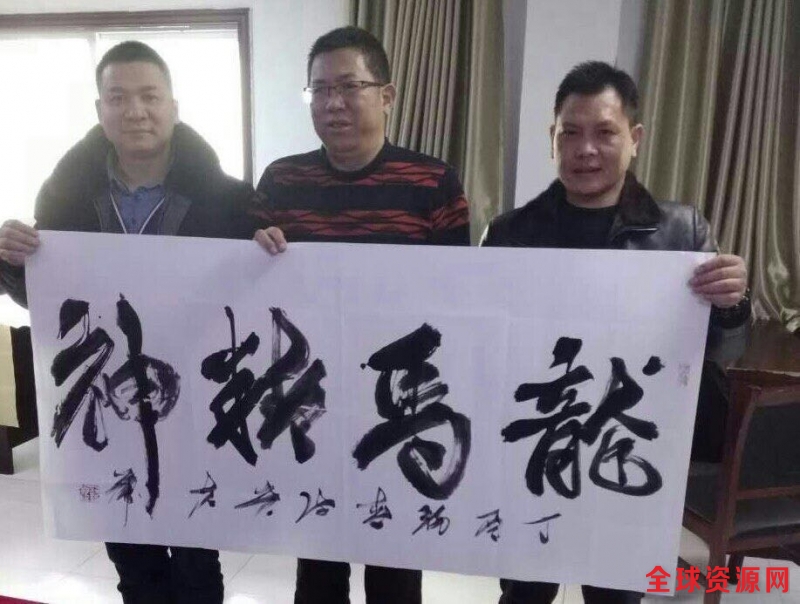 龍馬精神
丁酉初春
全球资源网